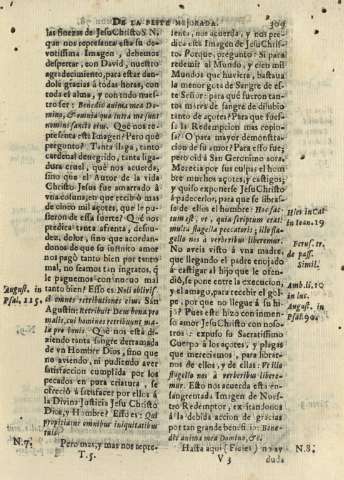 DE LA PESTE MEJORADA. 309
las finezas de JesuChristo S. N.
que nos representa esta su de-
votissima Imagen, debemos
despertar, con David, nuestro
agradecimiento, para estar dan-
dole gracias à todas horas, con
toda el alma, y con todo nues-
tro ser: Benedic anima mea Do-
mino, & omnia quæ intra me sunt
nomini sancto eius. Què nos re-
presenta esta Imagen? Pero què
pregunto? Tanta llaga, tanto
cardenal denegrido, tanta liga-
dura cruel, què nos acuerda,
sino que el Autor de la vida
Christo Jesus fue amarrado à
vna coluna, en que recibiò mas
de cinco mil açotes, que le pu-
sieron de essa suerte? Què nos
predica tanta afrenta, desnu-
dez, dolor, sino que acordan-
donos de que su infinito amor
nos pagò tanto bien por tanto
mal, no seamos tan ingratos, q̃
le paguemos con tanto mal
tanto bien? Esso es: Noli oblivis-
ci omnes retributiones eius. San
Agustin: Retribuit Deus bona pro
malis, cui homines retribuunt ma-
la pro bonis. Què nos està di-
ziendo tanta sangre derramada
de vn Hombre Dios, sino que
no aviendo, ni pudiendo aver
satisfaccion cumplida por los
pecados en pura criatura, se
ofreciò à satisfacer por ellos à
la Divino Justicia Jesu Christo
Dios, y Hombre? Esso es: Qui
propitiatur omnibus iniquitatibus
tuis.
Pero mas, y mas nos repre-
T. 5.
August. in
Psal. 115.
N. 7.
senta, nos acuerda, y nos predi-
ca esta Imagen de Jesu Chris-
to. Porque, pregunto: Si para
redemir al Mundo, y cien mil
Mundos que huviera, bastava
la menor gota de Sangre de es-
te Señor: para què fueron tan-
tos mares de sangre de diluvio
tanto de açotes? Para que fues-
se la Redempcion mas copio-
sa? O para mayor demostra-
cion de su amor? Para esso fue;
pero oìd à San Geronimo aora.
Merecia por sus culpas el hom-
bre muchos açotes, y castigos;
y quiso exponerse Jesu Christo
à padecerlos, para que se libras-
se de ellos el hombre: Hoc fac-
tum est, vt, quia scriptum erat:
multa flagella peccatoris; illo fla-
gello nos à verberibus liberemur.
No aveis visto à vna madre,
que llegando el padre enojado
à castigar al hijo que le ofen-
diò, se pone entre la execucion,
y el amago, para recibir el gol-
pe, por que no llegue à su hi-
jo? Pues este hizo con inmen-
so amor Jesu Christo con noso-
tros: expuso su Sacratissimo
Cuerpo à los açotes, y plagas
que mereciamos, para librar-
nos de ellos, y de ellas: Vt illo
flagello nos à verberibus libera-
mur. Esto nos acuerda esta en-
sangrentada Imagen de Nues-
tro Redemptor, excitandonos
à la debida accion de gracias
por tan grande beneficio: Bene-
dic anima mea Domino, &c.
Hasta aqui (Fieles) no ay
V 3 duda
Hier. in Cat.
in Ioan. 19
Simil.
in luc.
August. in
Psal. 90.
N. 8.